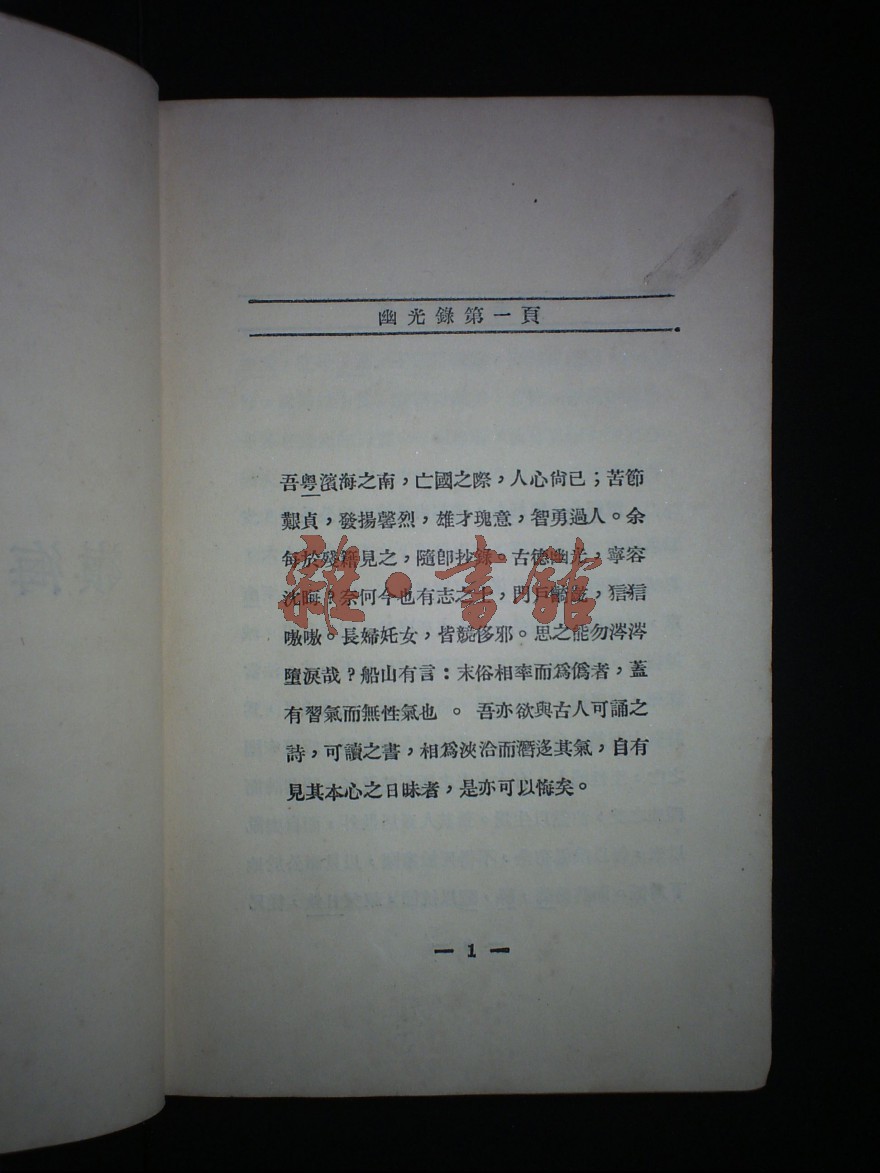 幽光錄第一頁
吾粵濱海之南，亡國之際，人心尙已；苦節
艱貞，發揚馨烈，雄才瑰意，智勇過人。余
每於殘籍見之，隨卽抄錄。古德幽光，寧容
沈晦？奈何今也有志之士，門戶齮齕，狺狺
嗷嗷。長婦妊女，皆競侈邪。思之能勿涔涔
墮淚哉？船山有言：末俗相率而爲僞者，蓋
有習氣而無性氣也 。 吾亦欲與古人可誦之
詩，可讀之書，相爲浹洽而潛迻其氣，自有
見其本心之日昧者，是亦可以悔矣。
— 1 —
雜·書館